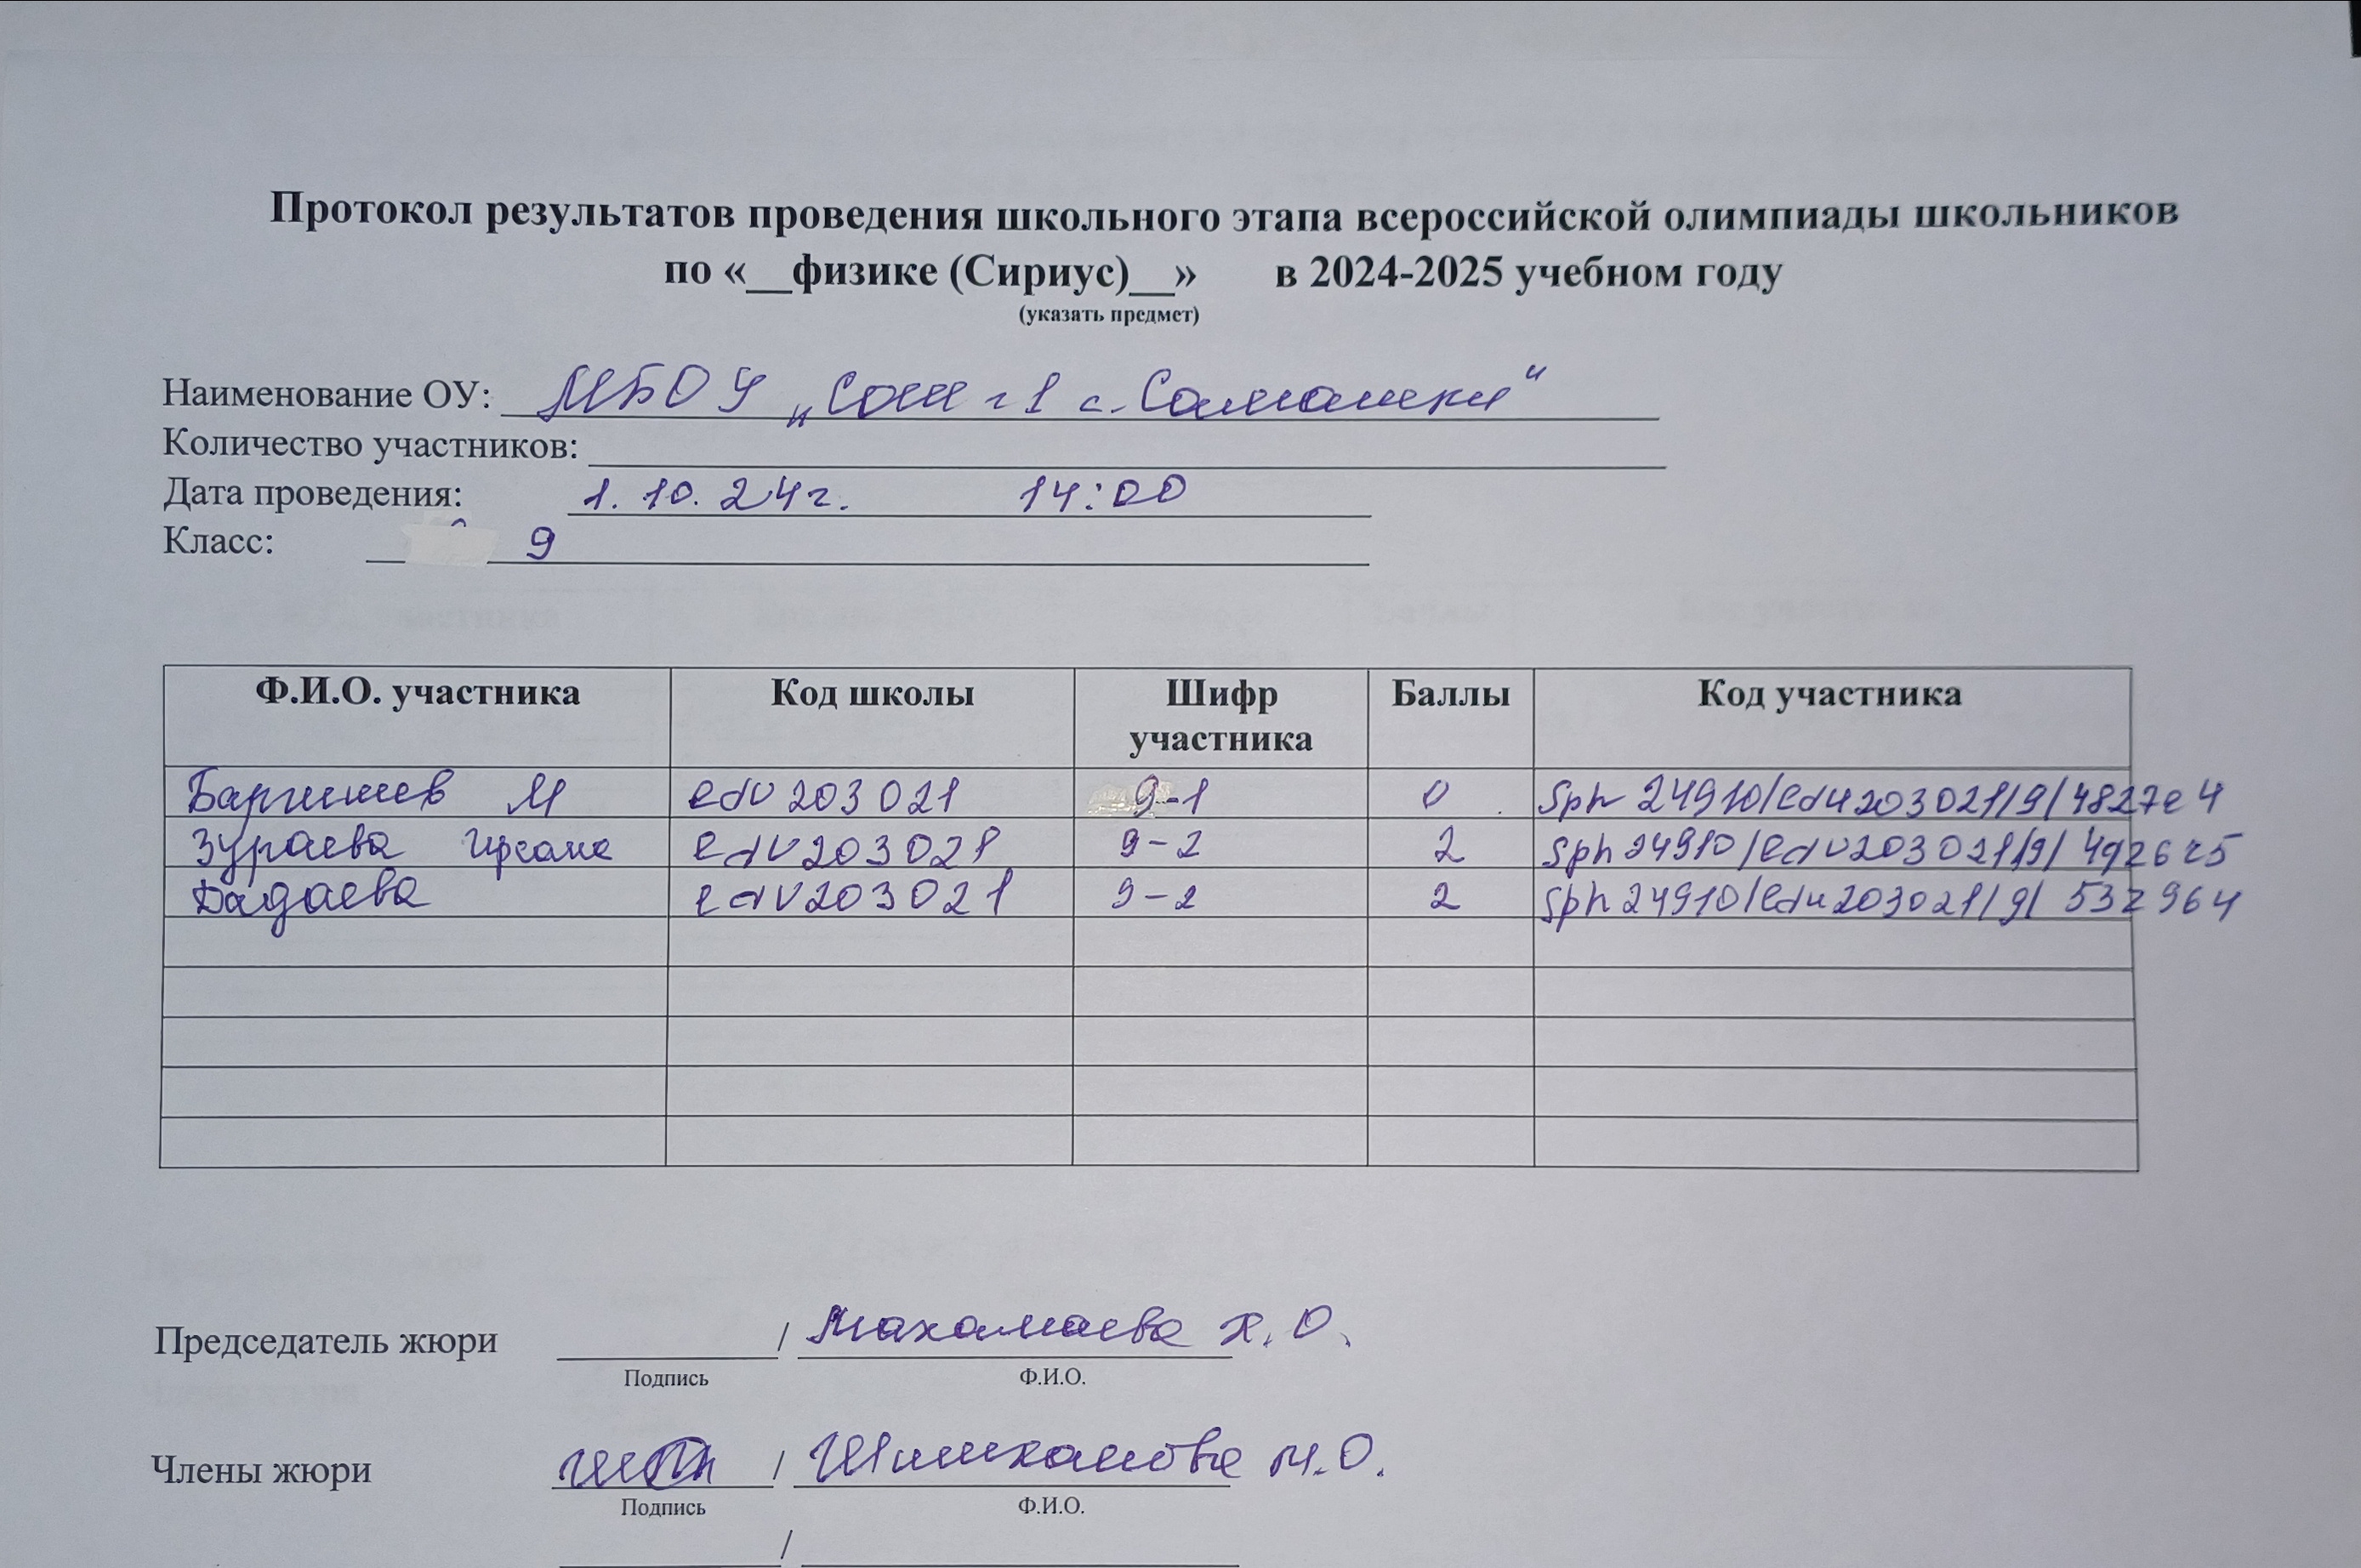 Протокол результатов проведения школьного этапа всероссийской олимпиады школьников
по «__физике (Сириус)__» в 2024-2025 учебном году
(указать предмет)
Наименование ОУ: МБОУ „Сош №1 с. Самашки"
Количество участников:
Дата проведения: 1.10.24г. 14:00
Класс: 9
Ф.И.О. участника Код школы Шифр участника Баллы Код участника
М edu203021 9-1 0 sph24910/edu203021/9/4827e4
Зураева edu203021 9-2 2 sph24910/edu203021/9/
Дадаева edu203021 9-2 2 sph24910/edu203021/9/
Председатель жюри / Махамаева Х.О.
Подпись Ф.И.О.
Члены жюри / Шишханова М.О.
Подпись Ф.И.О.
/